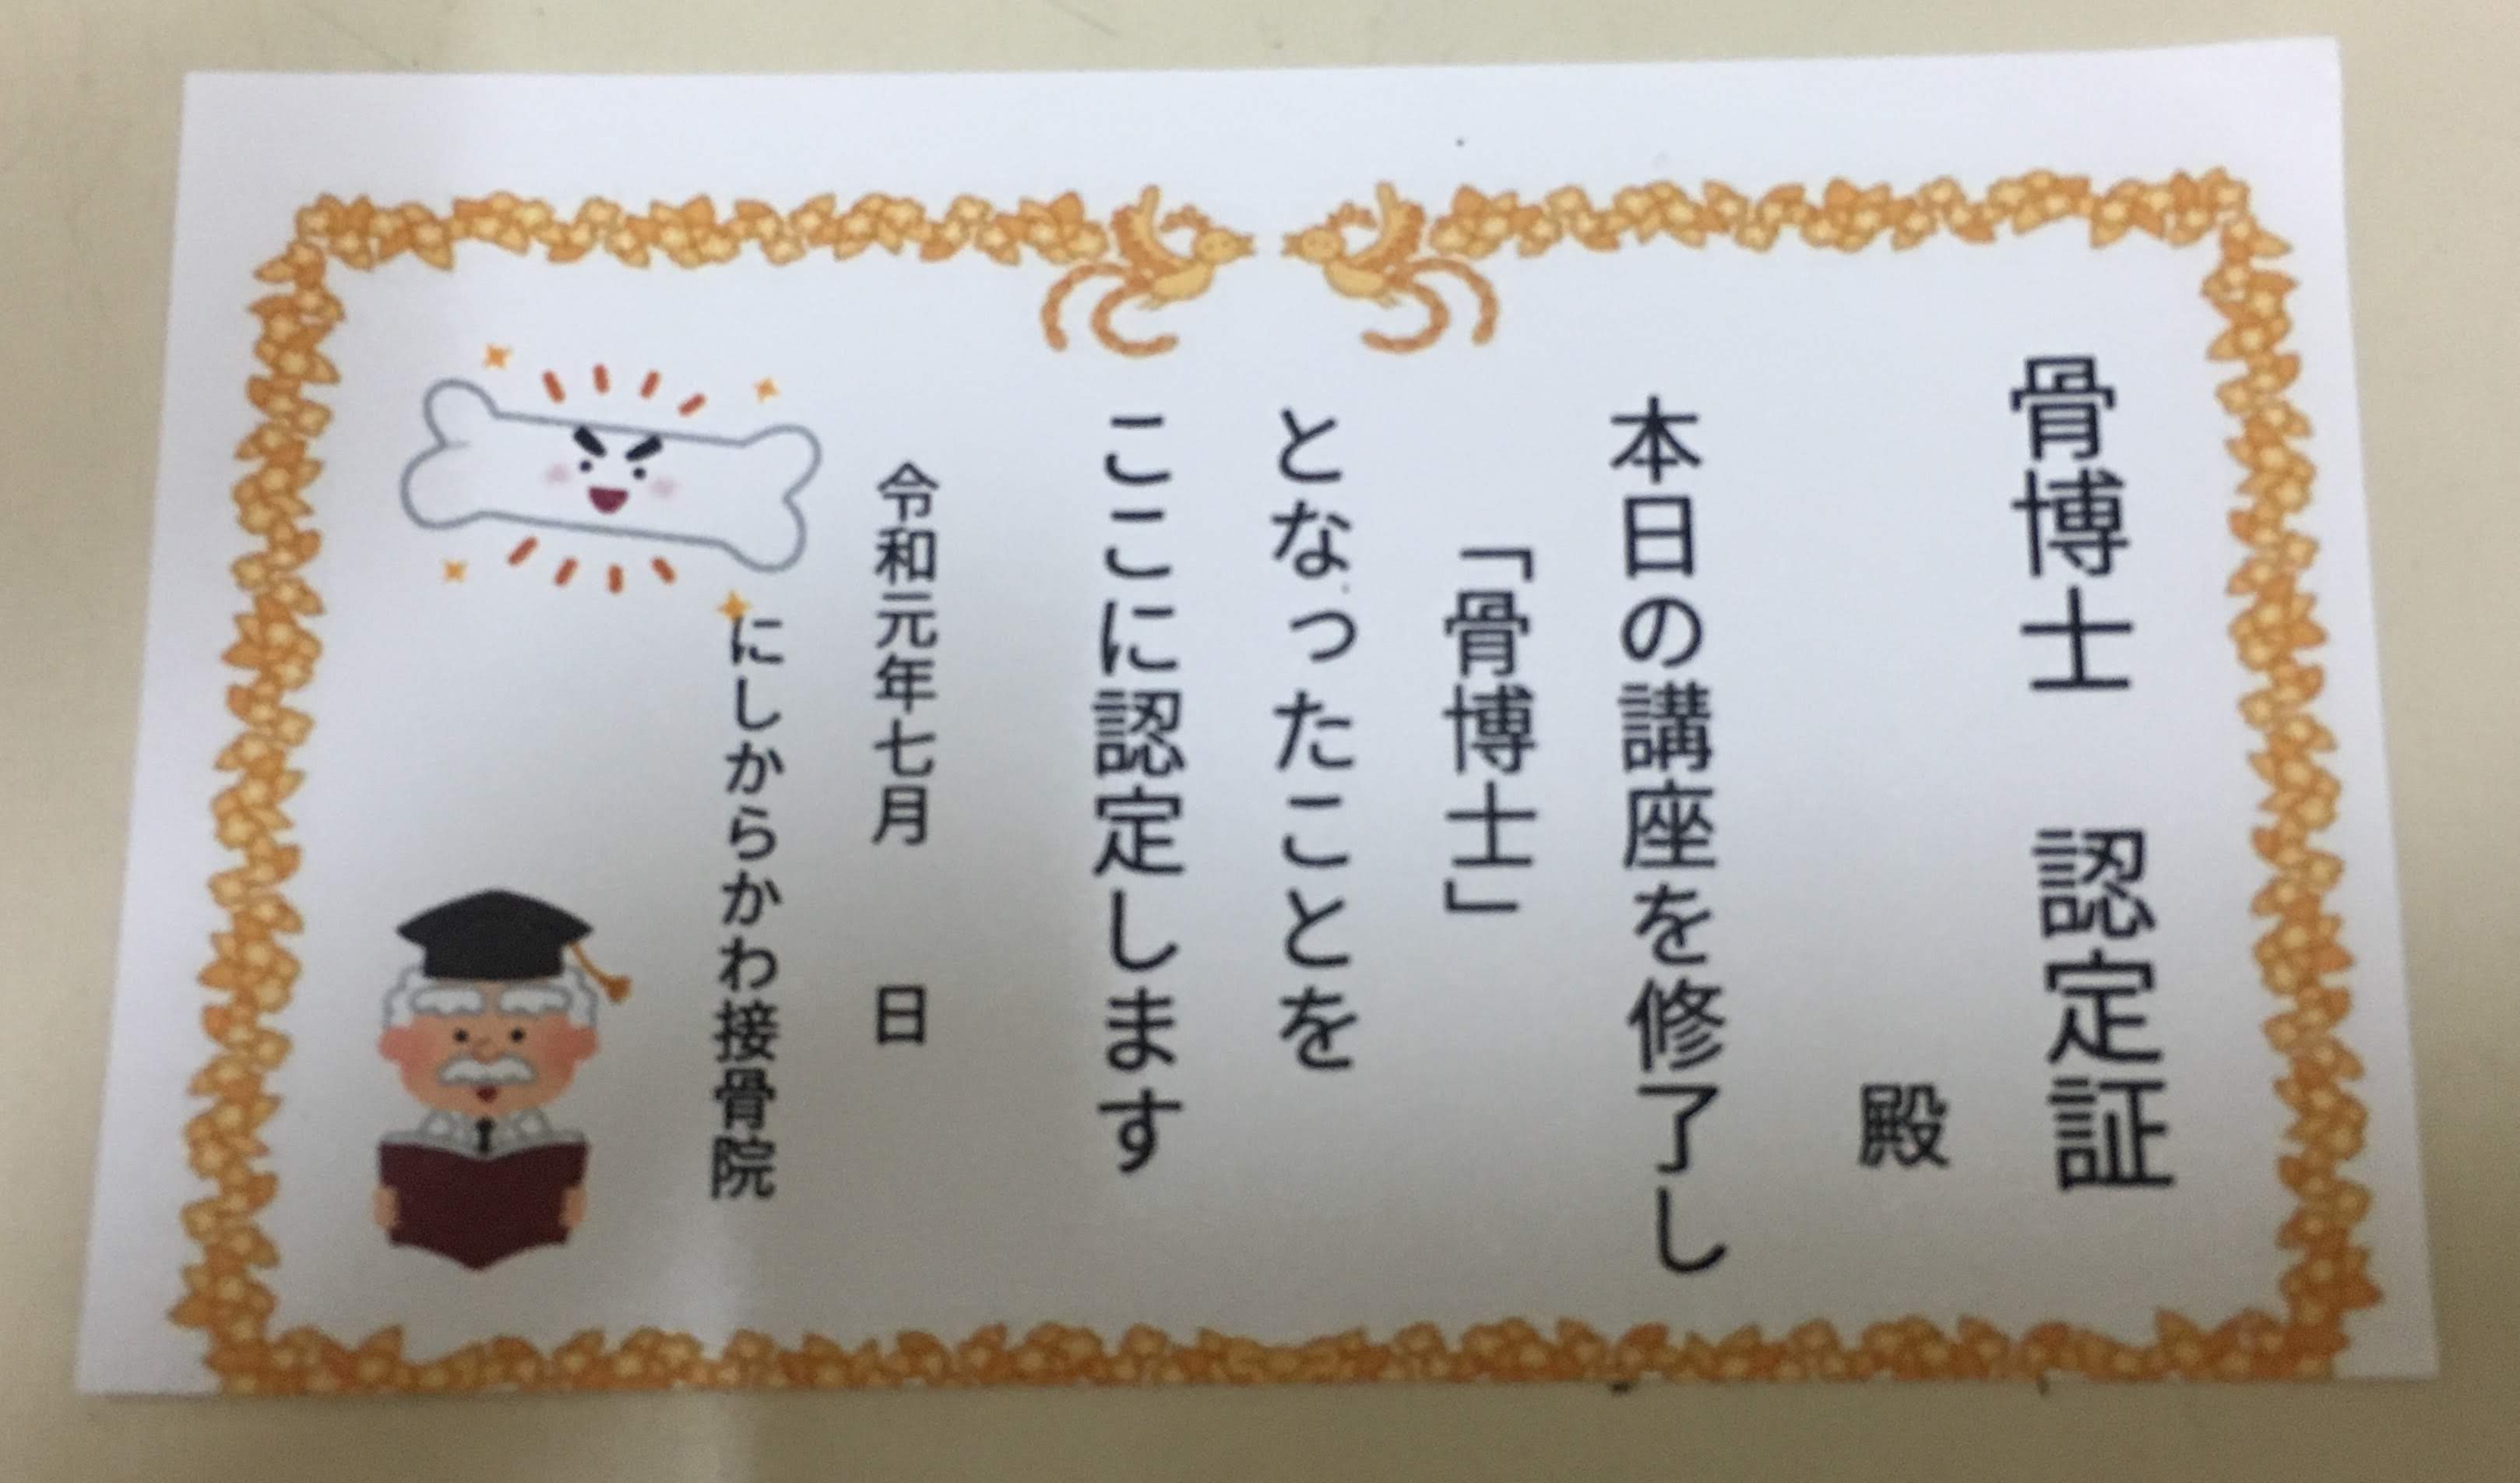 骨博士 認定証
殿
本日の講座を修了し
「骨博士」
となったことを
ここに認定します
令和元年七月 日
にしからかわ接骨院